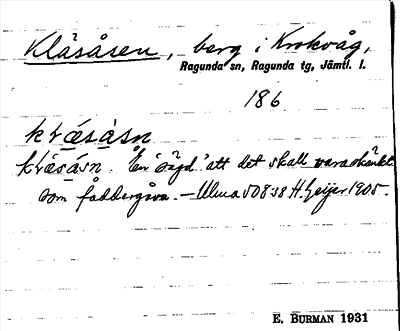 Kläsåsen, berg i Krokvåg,
Ragunda sn, Ragunda tg, Jämtl. l.
186
klæsåsn
klæsåsn. En 'sägd' att det skall vara skänkt
som faddergåva. – Ulma 50838 H. Geijer 1905.
E. BURMAN 1931